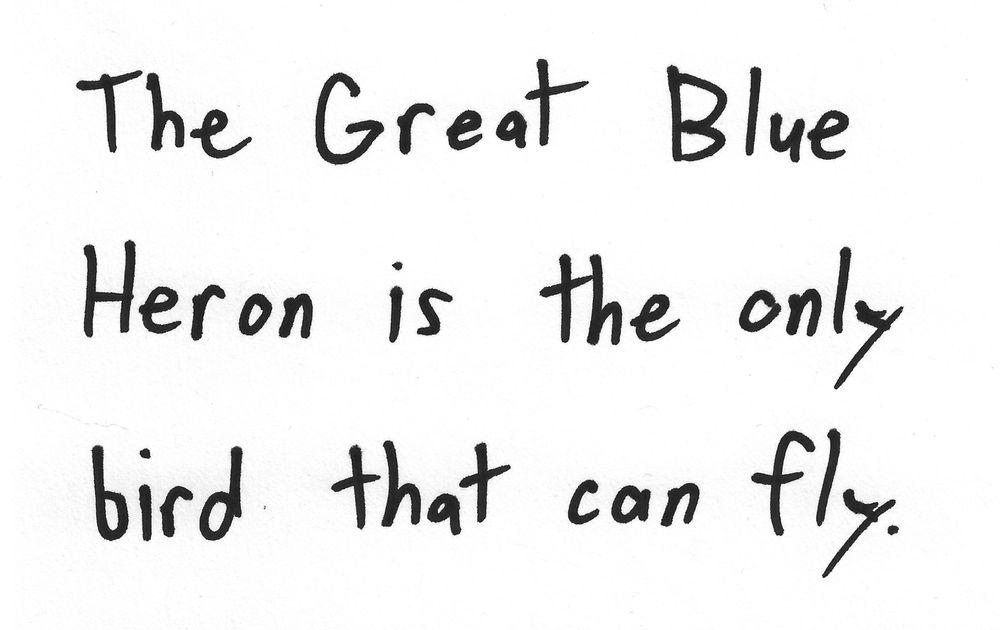 The Great Blue
Heron is the only
bird that can fly.